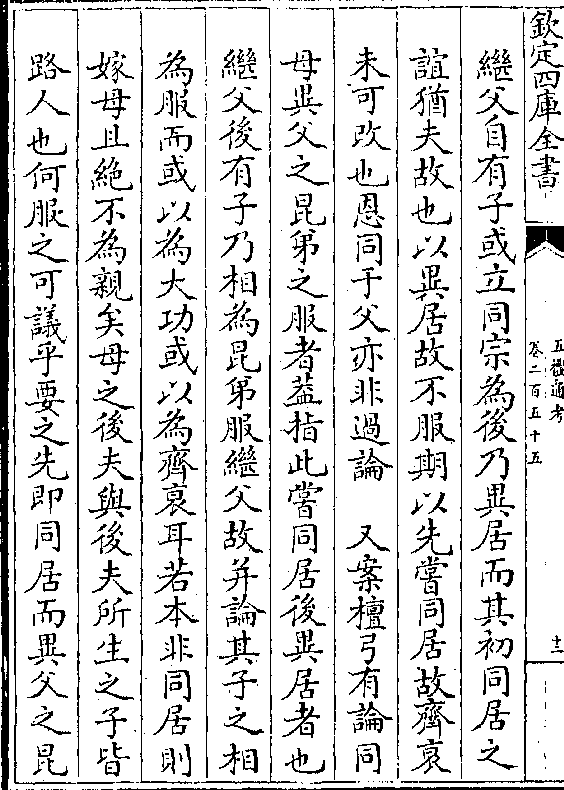 欽定四庫全書
五禮通考
卷二百五十五
十三
繼父自有子或立同宗為後乃異居而其初同居之
誼猶夫故也以異居故不服期以先嘗同居故齊衰
未可改也恩同于父亦非過論　又案檀弓有論同
母異父之昆弟之服者葢指此嘗同居後異居者也
繼父後有子乃相為昆弟服繼父故并論其子之相
為服而或以為大功或以為齊衰耳若本非同居則
嫁母且絶不為親矣母之後夫與後夫所生之子皆
路人也何服之可議乎要之先即同居而異父之昆